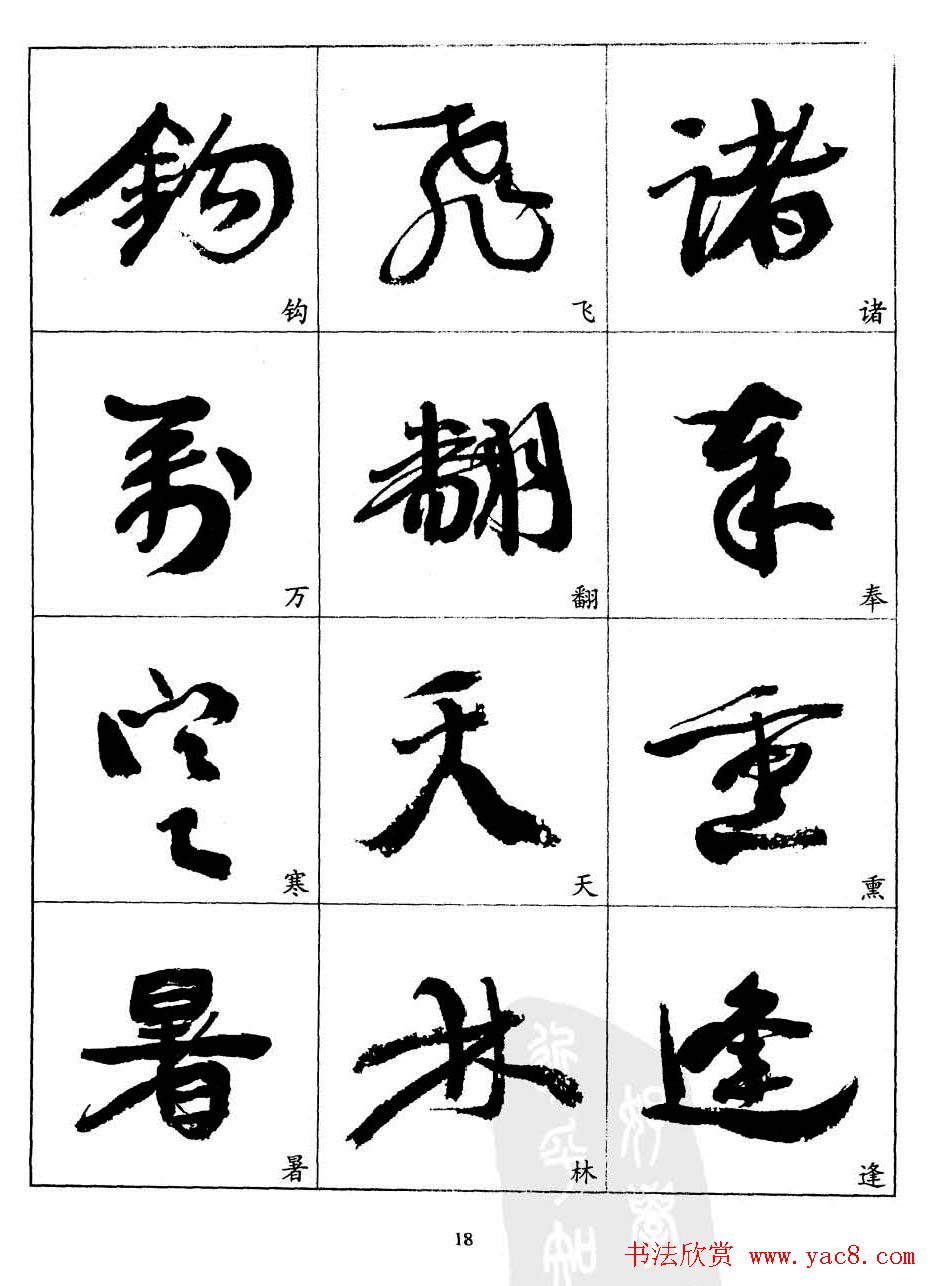 諸
诸
奉
奉
熏
逢
逢
飛
飞
翻
翻
天
天
林
林
鈎
钩
萬
万
寒
寒
暑
暑
好學
近乎知
18
书法欣赏 www.yac8.com